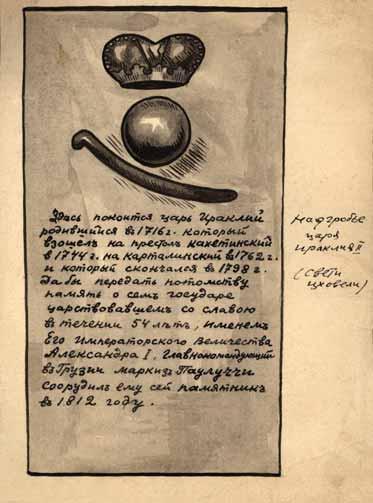 Здѣсь покоится царь Ираклий
родившийся въ 1716 г. который
взошелъ на престолъ кахетинский
въ 1744 г. на карталинский въ 1762 г.
и который скончался въ 1798 г.
Дабы передать потомству
память о семъ государе
царствовавшемъ со славою
въ течении 54 лѣтъ, именемъ
Его Императорского Величества
Александра I. Главнокомандующий
въ Грузии маркизъ Паулуччи
соорудилъ ему сей памятникъ
въ 1812 году.
Надгробье
царя
Ираклия II
(Свети
цховели)